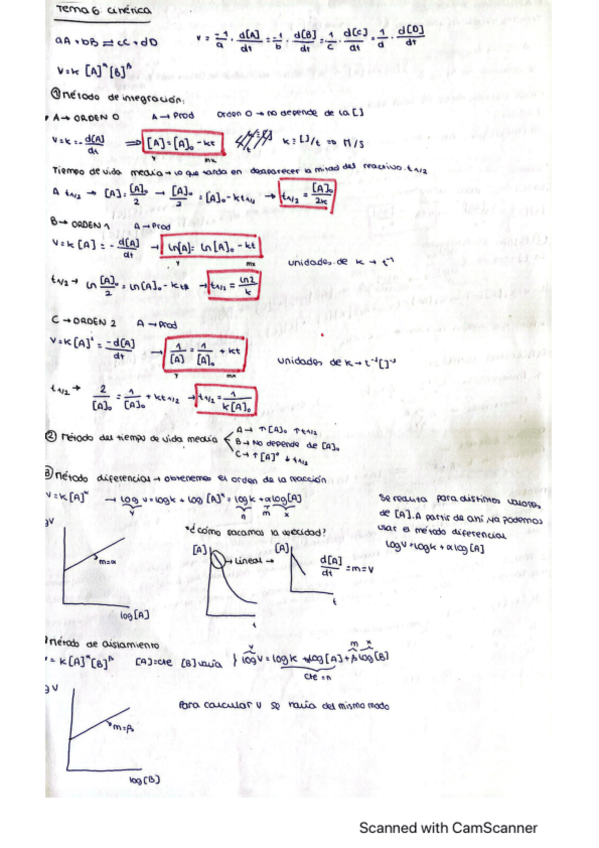 Tema 6: cinética
aA + bB ⇌ cC + dD    v = -1/a · d[A]/dt = -1/b · d[B]/dt = 1/c · d[C]/dt = 1/d · d[D]/dt
V = K [A]^α [B]^β
① Método de integración:
A → ORDEN 0    A → Prod    Orden 0 → no depende de la []
V = K = -d[A]/dt ⇒ [A] = [A]₀ - kt    K = []/t ⇒ M/s
y    mx
Tiempo de vida media → lo que tarda en desaparecer la mitad del reactivo. t1/2
A t1/2 → [A] = [A]₀/2 → [A]₀/2 = [A]₀ - kt1/2 → t1/2 = [A]₀/2k
B → ORDEN 1    A → Prod
V = K [A] = -d[A]/dt → ln[A] = ln [A]₀ - kt
y    mx
unidades de K → t⁻¹
t1/2 → ln [A]₀/2 = ln [A]₀ - K t1/2 → t1/2 = ln2/k
C → ORDEN 2    A → Prod
V = K [A]² = -d[A]/dt → 1/[A] = 1/[A]₀ + kt
y    mx
unidades de K → t⁻¹[]⁻¹
t1/2 → 2/[A]₀ = 1/[A]₀ + kt1/2 → t1/2 = 1/k[A]₀
② Método del tiempo de vida media
A → ↑[A]₀ ↑t1/2
B → No depende de [A]₀
C → ↑[A]⁰ ↓t1/2
③ Método diferencial → obtenemos el orden de la reacción
V = K[A]^α → log v = log k + log [A]^α = log k + α log [A]
y    n    m    x
Se realiza para distintos valores
de [A]. A partir de ahí ya podemos
usar el método diferencial
log V = log K + α log [A]
gV
m = α
log [A]
*¿cómo sacamos la velocidad?
[A]    → Lineal →    [A]    d[A]/dt = m = V
t    t
Método de aislamiento
= K [A]^α [B]^β    [A] = cte    [B] varía } log V = log K + α log [A] + β log [B]
y    m    x
cte = n
Para calcular v se haría del mismo modo
gV
m = β
log [B]
Scanned with CamScanner